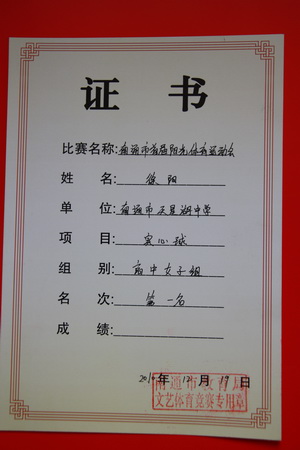 证 书
比赛名称:南通市首届阳光体育运动会
姓 名:徐阳
单 位:南通市天星湖中学
项 目:实心球
组 别:高中女子组
名 次:第一名
成 绩:
年12月19日
南通市教育局
文艺体育竞赛专用章